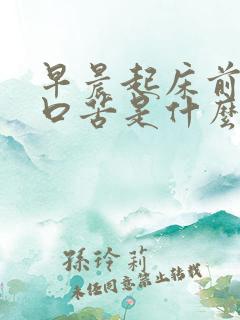 早晨起床前
口苦是什麼
孫玲莉
未经同意禁止转载